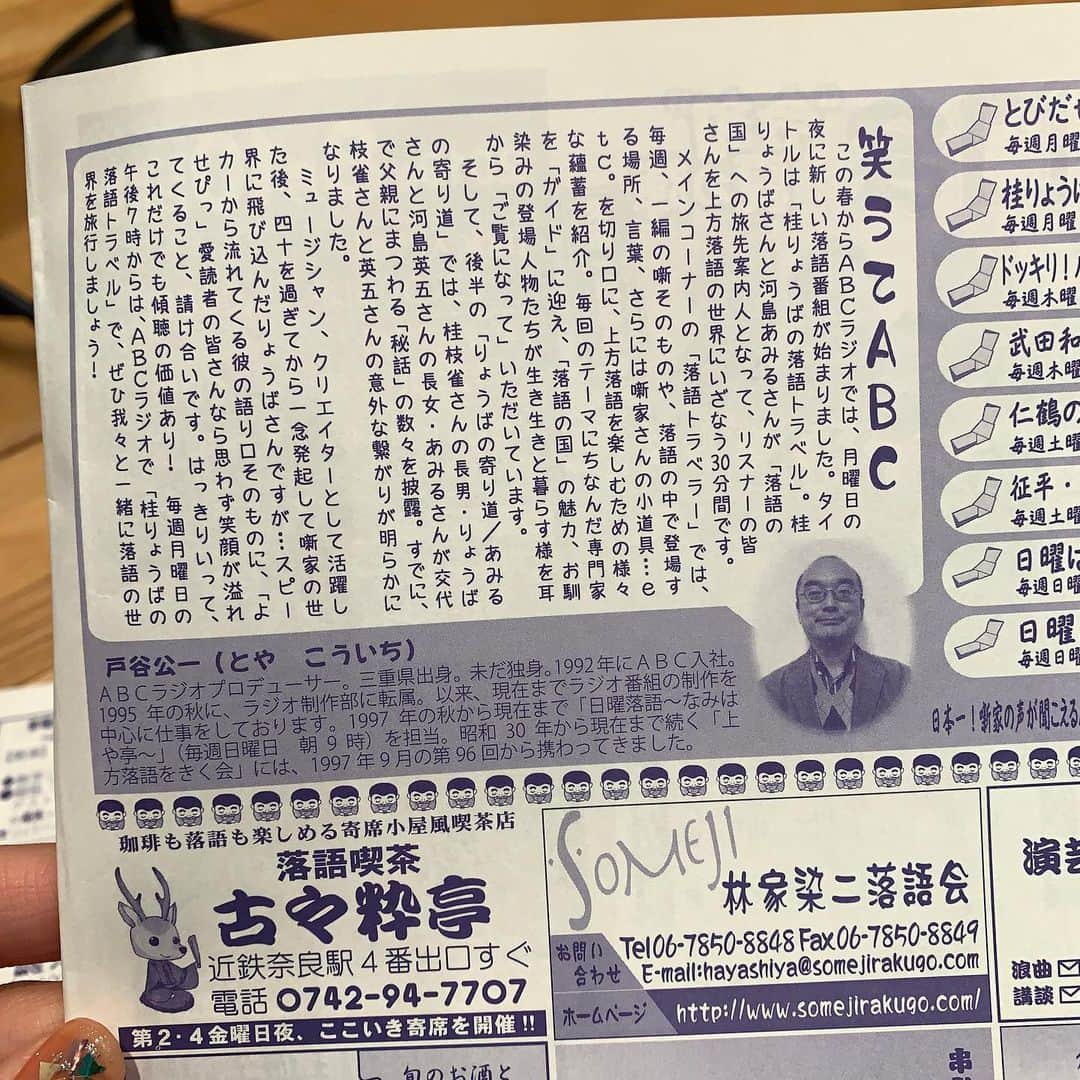 笑うてABC
この春からABCラジオでは、月曜日の
夜に新しい落語番組が始まりました。タイ
トルは「桂りょうばの落語トラベル」。桂
りょうばさんと河島あみるさんが、「落語の
国」への旅先案内人となって、リスナーの皆
さんを上方落語の世界にいざなう30分間です。
メインコーナーの「落語トラベラー」では、
毎週、一編の噺そのものや、落語の中で登場す
る場所、言葉、さらには噺家さんの小道具…e
tc。を切り口に、上方落語を楽しむための様々
な蘊蓄を紹介。毎回のテーマにちなんだ専門家
を「ガイド」に迎え、「落語の国」の魅力、お馴
染みの登場人物たちが生き生きと暮らす様を耳
から「ご覧になって」いただいています。
そして、後半の「りょうばの寄り道／あみる
の寄り道」では、桂枝雀さんの長男・りょうば
さんと河島英五さんの長女・あみるさんが交代
で父親にまつわる「秘話」の数々を披露。すでに、
枝雀さんと英五さんの意外な繋がりが明らかに
なりました。
ミュージシャン、クリエイターとして活躍し
た後、四十を過ぎてから一念発起して噺家の世
界に飛び込んだりょうばさんですが…スピー
カーから流れてくる彼の語り口そのものに、「よ
せぴっ」愛読者の皆さんなら思わず笑顔が溢れ
てくること、請け合いです。はっきりいって、
これだけでも傾聴の価値あり！　毎週月曜日の
午後7時からは、ABCラジオで「桂りょうばの
落語トラベル」で、ぜひ我々と一緒に落語の世
界を旅行しましょう！
戸谷公一（とや　こういち）
ABCラジオプロデューサー。三重県出身。未だ独身。1992年にABC入社。
1995年の秋に、ラジオ制作部に転属。以来、現在までラジオ番組の制作を
中心に仕事をしております。1997年の秋から現在まで「日曜落語〜なみは
や亭〜」（毎週日曜日　朝9時）を担当。昭和30年から現在まで続く「上
方落語をきく会」には、1997年9月の第96回から携わってきました。
とびだせ
毎週月曜
桂りょうば
毎週月曜
ドッキリ！
毎週木曜
武田和
毎週木曜
仁鶴の
毎週土曜
征平・
毎週土曜
日曜は
毎週日曜
日曜
毎週日曜
日本一！噺家の声が聞こえる
珈琲も落語も楽しめる寄席小屋風喫茶店
落語喫茶
古々粋亭
近鉄奈良駅4番出口すぐ
電話 0742-94-7707
第2・4金曜日夜、ここいき寄席を開催!!
SOMEJI
林家染二落語会
お問い
合わせ
Tel06-7850-8848 Fax06-7850-8849
E-mail:hayashiya@somejirakugo.com
ホームページ
http://www.somejirakugo.com/
演芸
浪曲
講談
旬のお酒と
串